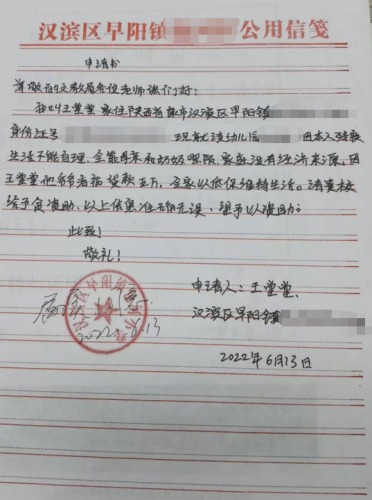 汉滨区早阳镇 公用信笺
申请书
尊敬的区教局各位老师你们好:
我叫王莹莹 家住陕西省 市汉滨区早阳镇
身份证号 现就读幼儿 因本人残疾
生活不能自理,全靠 和奶奶照顾,家庭没有经济来源,因
王莹莹 看病贷款 万,全家以低保维持生活。请贵校
给予 资助,以上信息准确无误,望予以资助。
此致!
敬礼!
申请人:王莹莹.
汉滨区早阳镇
属实
2022.6.13
2022年6月13日